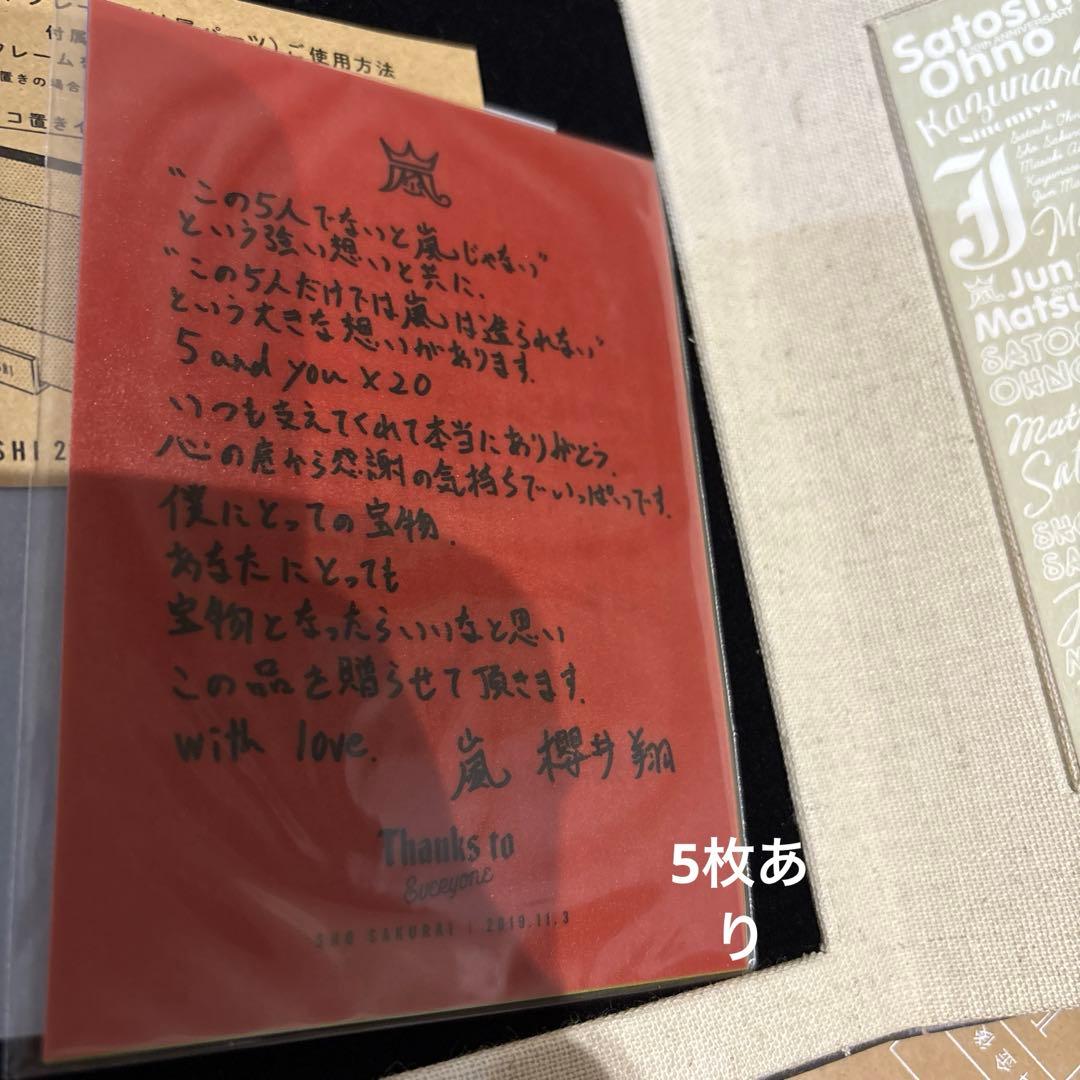 パーツ)ご使用方法
付属
フレーム
置きの場合
コ置き
SHI 2
嵐
"この5人でないと嵐じゃない"
という強い想いと共に、
"この5人だけでは嵐は造られない"
という大きな想いがあります。
5 and you × 20
いつも支えてくれて本当にありがとう。
心の底から感謝の気持ちでいっぱいです。
僕にとっての宝物。
あなたにとっても
宝物となったらいいなと思い
この品を贈らせて頂きます。
with love.
嵐 櫻井翔
Thanks to
Everyone
SHO SAKURAI | 2019.11.3
5枚あ
り
Satoshi
20TH ANNIVERSARY
Ohno
Kazunari
Ninomiya
Satoshi Ohno
Sho Saku
Masaki A
Kazunar
Jun Ma
J
Jun
Matsu
SATO
OHNO
Mat
Sat
SHO
SA
金後